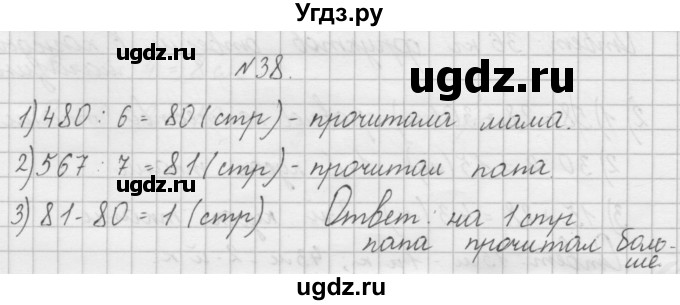 Угдз.ру
ugdz.ru
ugdz.ru
№38.
1) 480 : 6 = 80 (стр) - прочитала мама.
2) 567 : 7 = 81 (стр) - прочитал папа.
3) 81 - 80 = 1 (стр) Ответ: на 1 стр
папа прочитал боль-
ше.
ugdz.ru
ugdz.ru
ugdz.ru
ugdz.ru